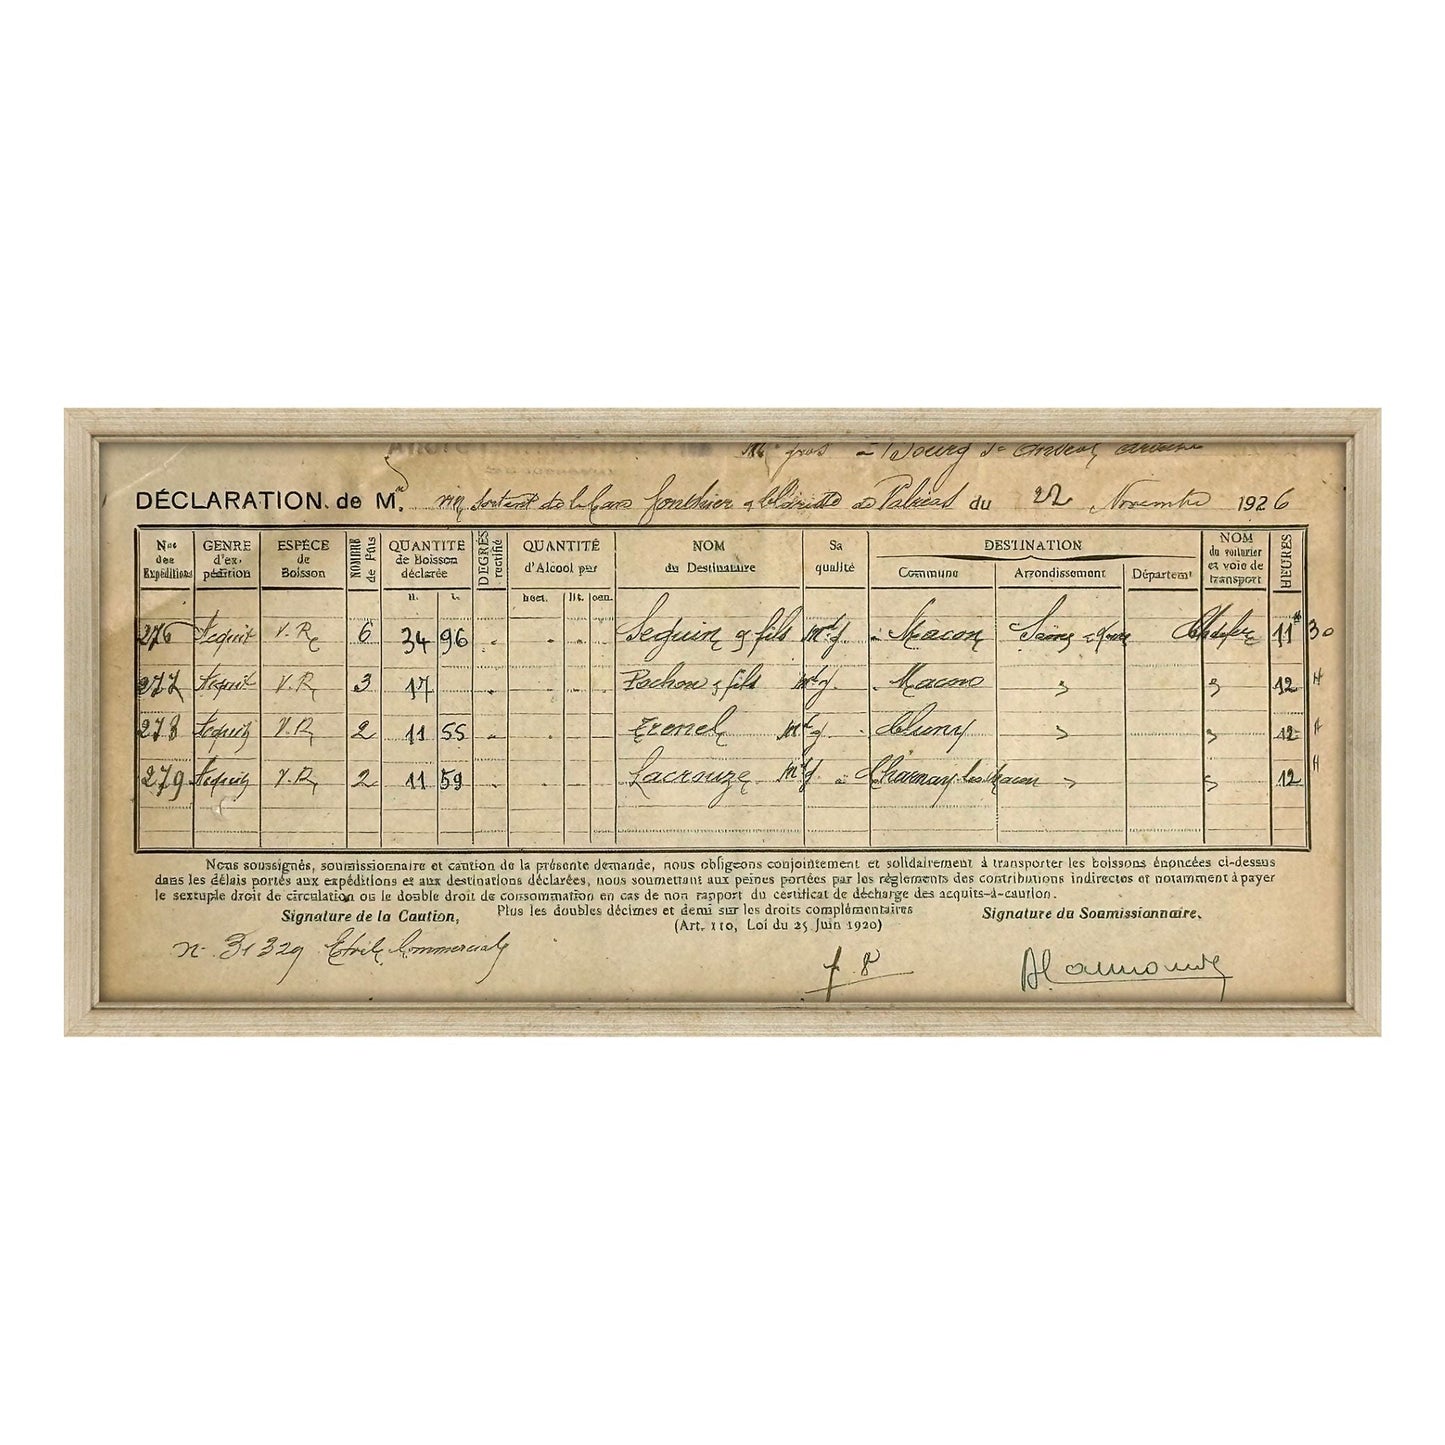 gros à Bourg St Andéol Ardèche
DÉCLARATION. de M. vin sortant de la Cave & de Valréas du 22 Novembre 1926
Nos des Expéditions GENRE d'ex- pédition ESPÈCE de Boisson NOMBRE de Fûts QUANTITÉ de Boisson déclarée DEGRÉS rectifié QUANTITÉ d'Alcool pur NOM du Destinataire Sa qualité DESTINATION Commune Arrondissement Départemt NOM du voiturier et voie de transport HEURES
H. L. hect. lit. cen.
276 Acquit V. R. 6 34 96 Seguin & fils Md g. à Macon Saône & Loire Ch de fer 11 H 30
277 Acquit V. R. 3 17 Pochon & fils Md g. Macon " " 12 H
278 Acquit V. R. 2 11 55 Trenel Md g. Cluny " " 12 H
279 Acquit V. R. 2 11 59 Lacrouze Md g. à Charnay les Macon " " 12 H
Nous soussignés, soumissionnaire et caution de la présente demande, nous obligeons conjointement et solidairement à transporter les boissons énoncées ci-dessus
dans les délais portés aux expéditions et aux destinations déclarées, nous soumettant aux peines portées par les règlements des contributions indirectes et notamment à payer
le sextuple droit de circulation ou le double droit de consommation en cas de non rapport du certificat de décharge des acquits-à-caution.
Signature de la Caution, Plus les doubles décimes et demi sur les droits complémentaires Signature du Soumissionnaire.
(Art. 110, Loi du 25 Juin 1920)
N° 31329 Commerciale